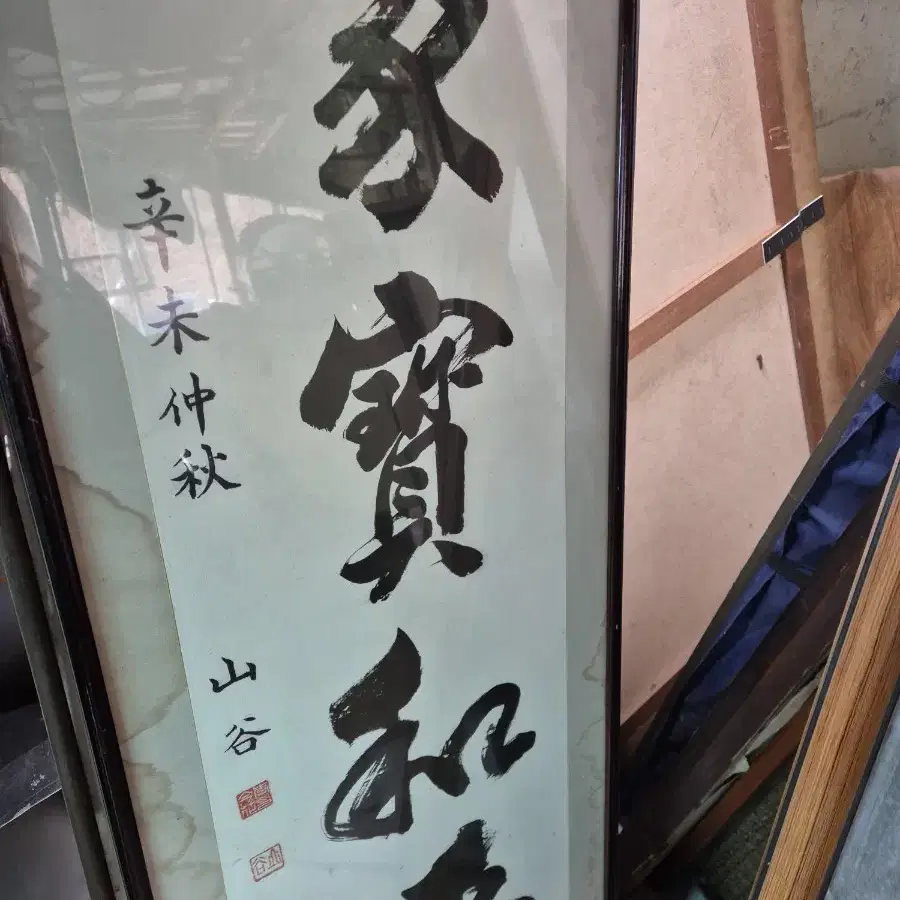 家寶和
辛未仲秋
山谷
山谷